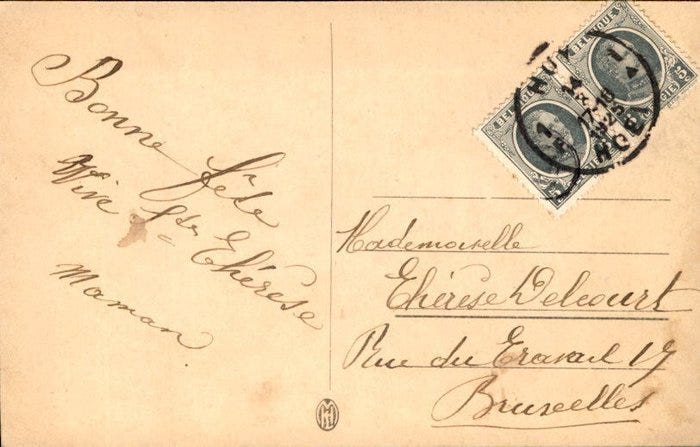 Bonne fête
Vive Ste Thérèse
Maman
HUY
HOEI
Mademoiselle
Thérèse Delcourt
Rue du Travail 17
Bruxelles